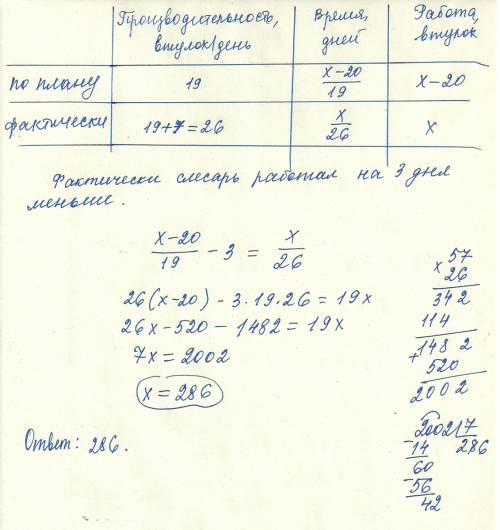 Производительность, втулок/день
Время, дней
Работа, втулок
по плану 19 x-20/19 x-20
фактически 19+7=26 x/26 x
Фактически слесарь работал на 3 дня
меньше.
x-20/19 - 3 = x/26
26(x-20) - 3·19·26 = 19x
26x-520-1482=19x
7x=2002
x=286
Ответ: 286.
x 57
26
342
114
+1482
520
2002
2002 | 7
-14 286
60
-56
42